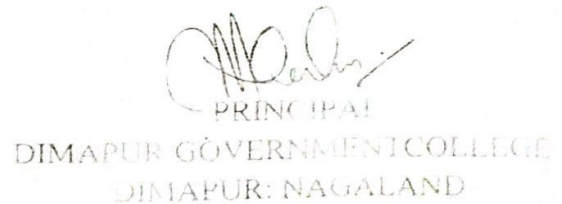 PRINCIPAL
DIMAPUR GOVERNMENT COLLEGE
DIMAPUR: NAGALAND